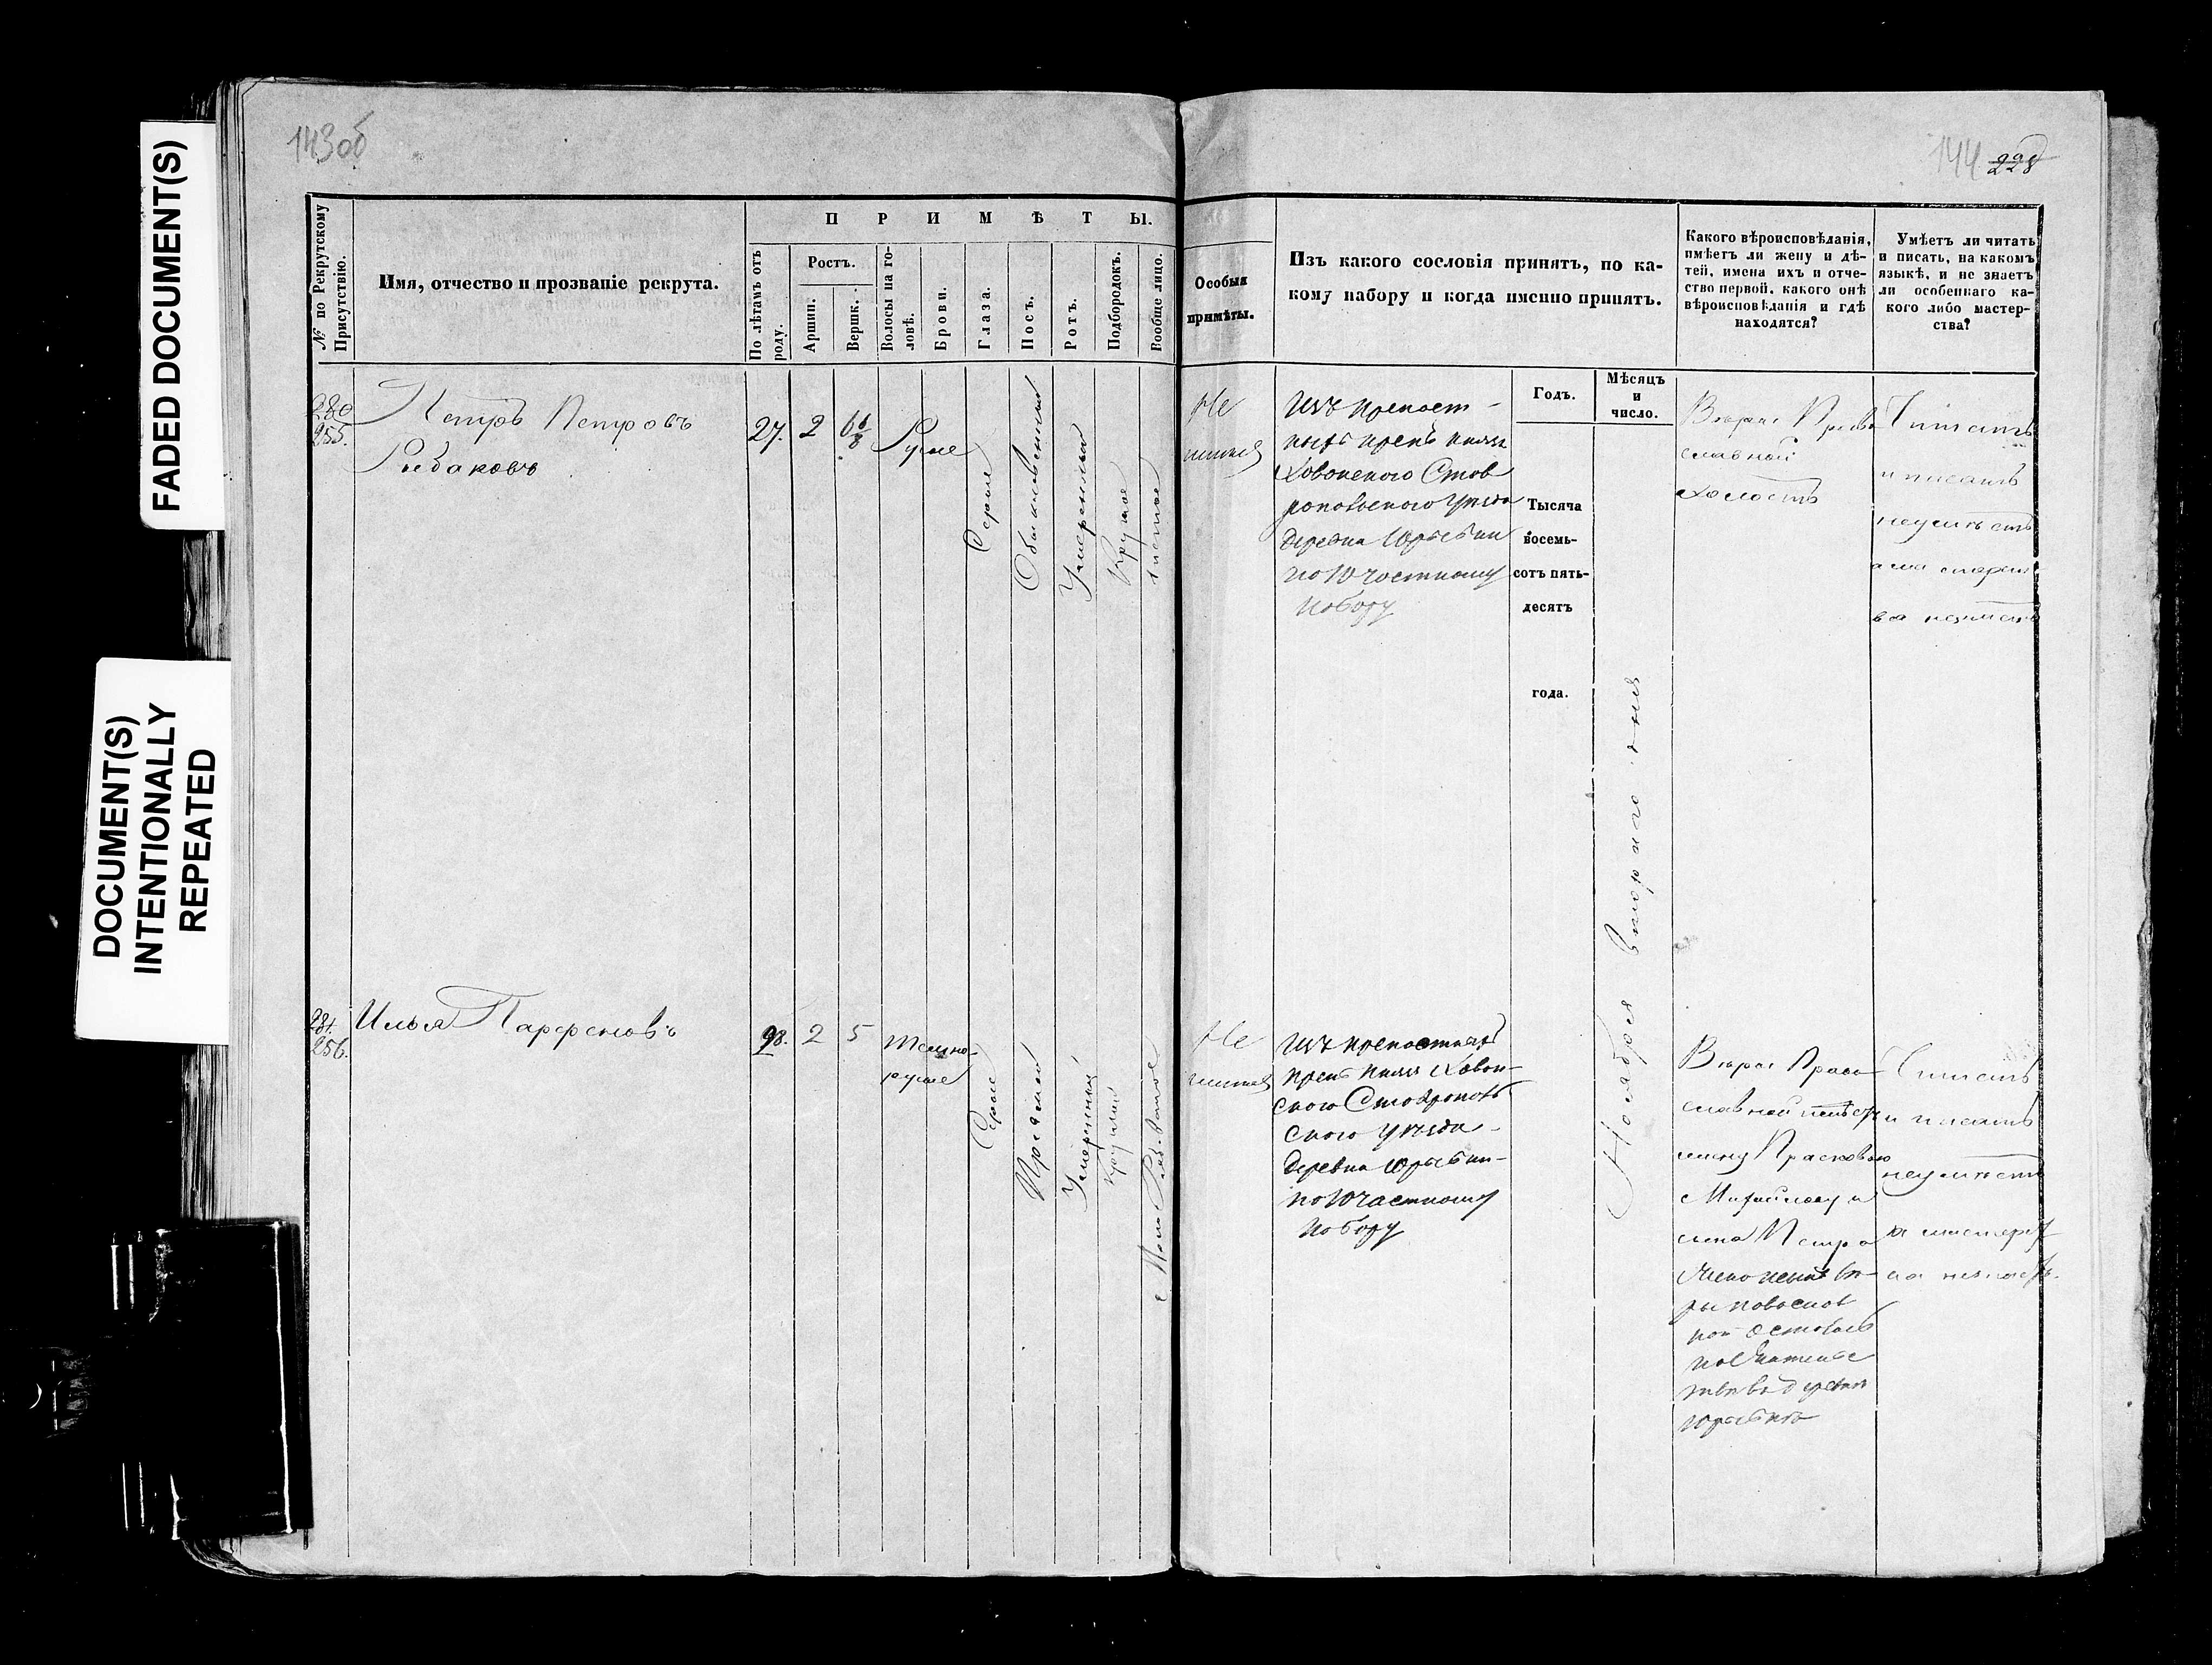 FADED DOCUMENT(S)
DOCUMENT(S)
INTENTIONALLY
REPEATED
143об
144 228
№ по Рекрутскому Присутствію.
Имя, отчество и прозваніе рекрута.
ПРИМѢТЫ.
По лѣтамъ отъ роду.
Ростъ.
Аршин.
Вершк.
Волосы на головѣ.
Брови.
Глаза.
Носъ.
Ротъ.
Подбородокъ.
Вообще лицо.
Особыя
примѣты.
Изъ какого сословія принятъ, по ка-
кому набору и когда именно принятъ.
Какого вѣроисповѣданія,
имѣетъ ли жену и дѣ-
тей, имена ихъ и отче-
ство первой, какого онѣ
вѣроисповѣданія и гдѣ
находятся?
Умѣетъ ли читать
и писать, на какомъ
языкѣ, и не знаетъ
ли особеннаго ка-
кого либо мастер-
ства?
Годъ.
Мѣсяцъ
и
число.
280
255.
Петръ Петровъ
Рыбаковъ
27.
2
6 6/8
Русые
Серые
Обыкновенный
Умеренный
Круглое
чистое
Не
имеет
Изъ крепост-
ныхъ крест. княз.
Хованского Став
ропольского уезда
деревни Юрьевки
по 10 частному
набору
Тысяча
восемь-
сотъ пять-
десятъ
года.
Ноября втораго дня
Веры Право
славной
холостъ
Читать
и писать
неумѣетъ
а мастерст-
ва незнаетъ
281.
256.
Илья Парфеновъ
28.
2
5
темно-
русые
Серые
Прямой
Умеренный
Круглый
Не
имеет
Изъ крепостныхъ
крест. княз. Хован-
ского Ставрополь
ского уезда
деревни Юрьевки
по 10 частному
набору
Веры Право
славной имѣетъ
жену Прасковью
Михайлову и
сына Петра
деревни
Читать
и писать
неумѣетъ
а мастерст
ва незнаетъ.